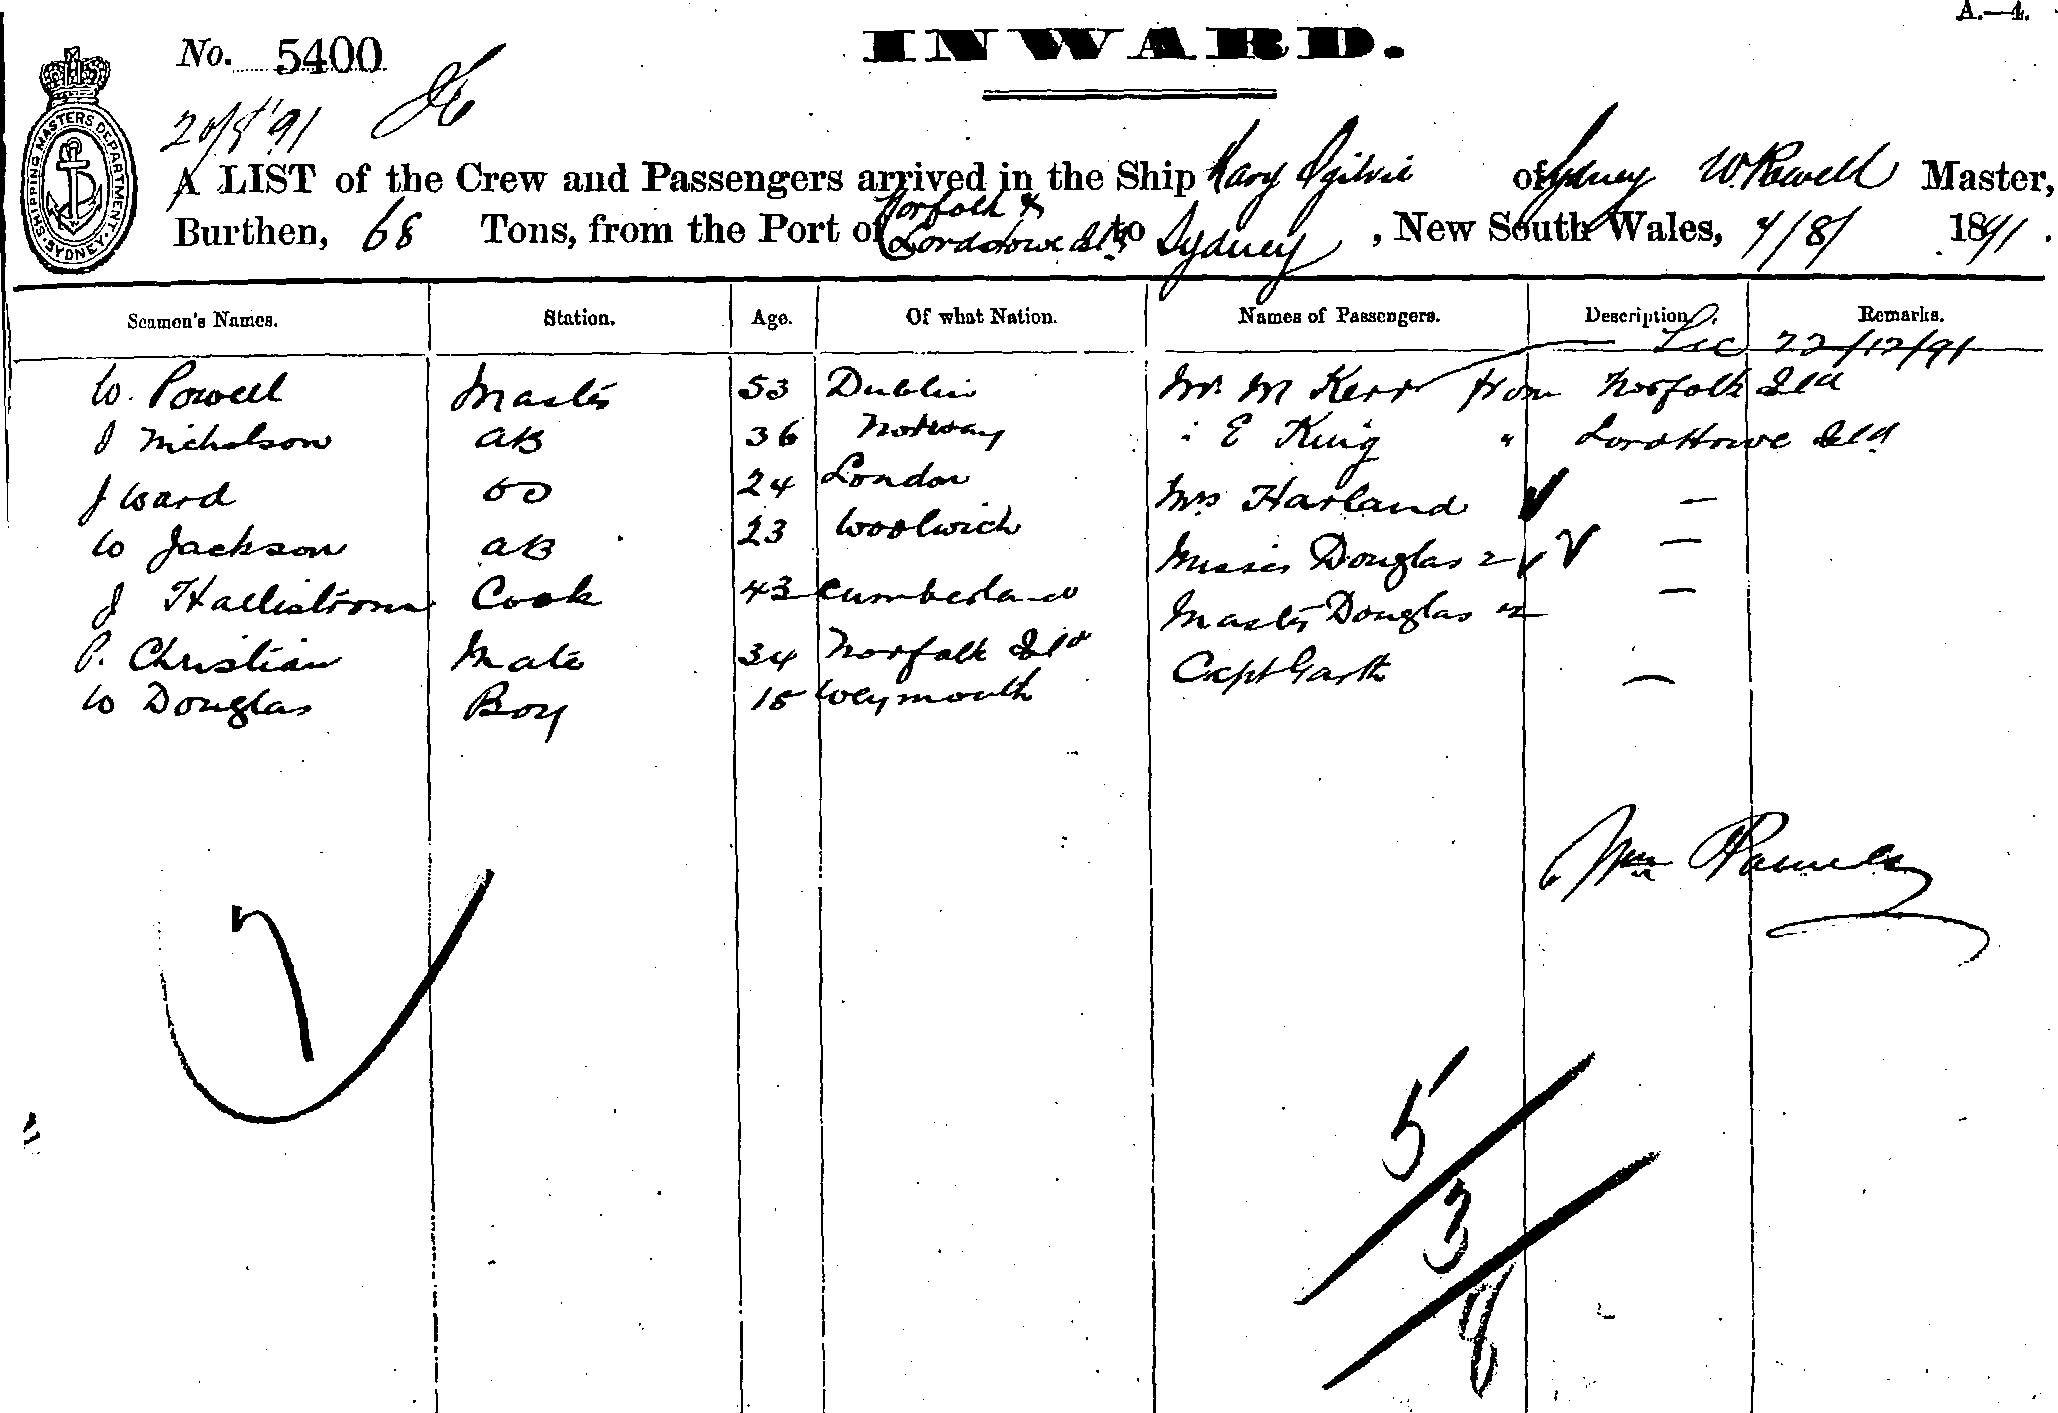 A.—4.
No. 5400
INWARD.
SHIPPING MASTERS DEPARTMENT · SYDNEY ·
20/8/91
A LIST of the Crew and Passengers arrived in the Ship Mary Ogilvie of Sydney W. Powell Master,
Norfolk &
Burthen, 68 Tons, from the Port of Lord Howe Ids to Sydney, New South Wales, 7/8/ 1891.
Seamen's Names. Station. Age. Of what Nation. Names of Passengers. Description. Remarks.
22/12/91
W. Powell Master 53 Dublin Mr M Kerr from Norfolk Ild
J Nicholson AB 36 Norway " E King " Lord Howe Ild
J Ward OD 24 London Mrs Harland —
W Jackson AB 23 Woolwich Misses Douglas 2 —
J Hallistrom Cook 43 Cumberland Master Douglas 2 —
P. Christian Mate 34 Norfolk Ild Capt Garth —
W Douglas Boy 15 Weymouth
Wm Powell
7
5
3
8